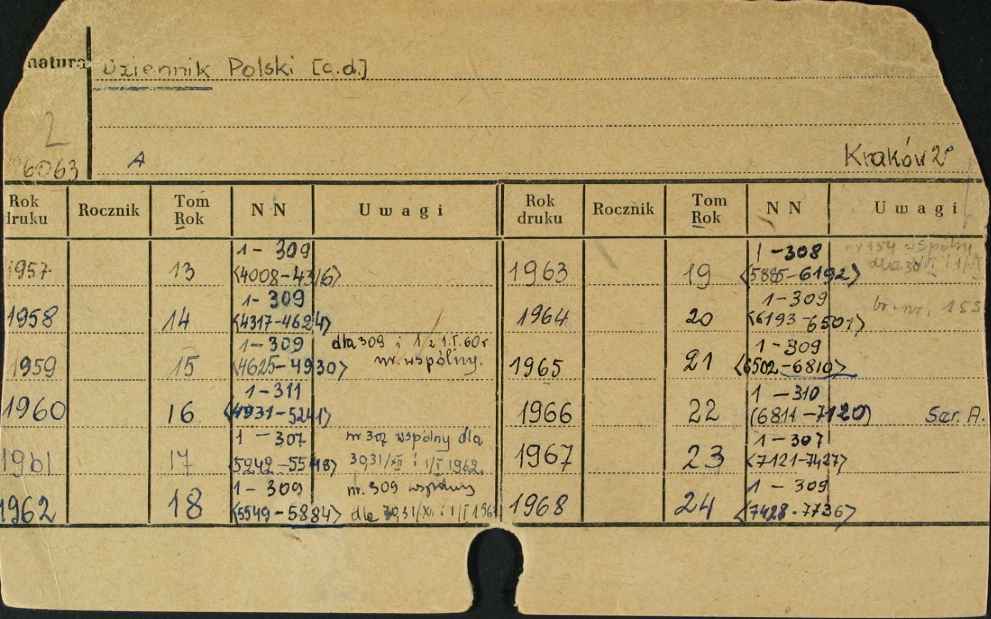 natura Dziennik Polski [c.d.]
2
6063 A Kraków 2°
Rok druku Rocznik Tom Rok N N Uwagi Rok druku Rocznik Tom Rok N N Uwagi
1957 13 1 - 309 <4008-4316> 1963 19 1 - 308 <5885-6192> wspólny dla 30
1958 14 1 - 309 <4317-4624> 1964 20 1 - 309 <6193-6501> br. nr. 155
1959 15 1 - 309 <4625-4930> dla 309 i 1/2 1.I.60r nr. wspólny. 1965 21 1 - 309 <6502-6810>
1960 16 1 - 311 <4931-5241> 1966 22 1 - 310 (6811-7120) Ser. A.
1961 17 1 - 307 <5242-5548> nr 307 wspólny dla 30,31/XII i 1/I 1962. 1967 23 1 - 307 <7121-7427>
1962 18 1 - 309 <5549-5884> nr. 309 wspólny dla 30,31/XII i 1/I 196 1968 24 1 - 309 <7428-7736>